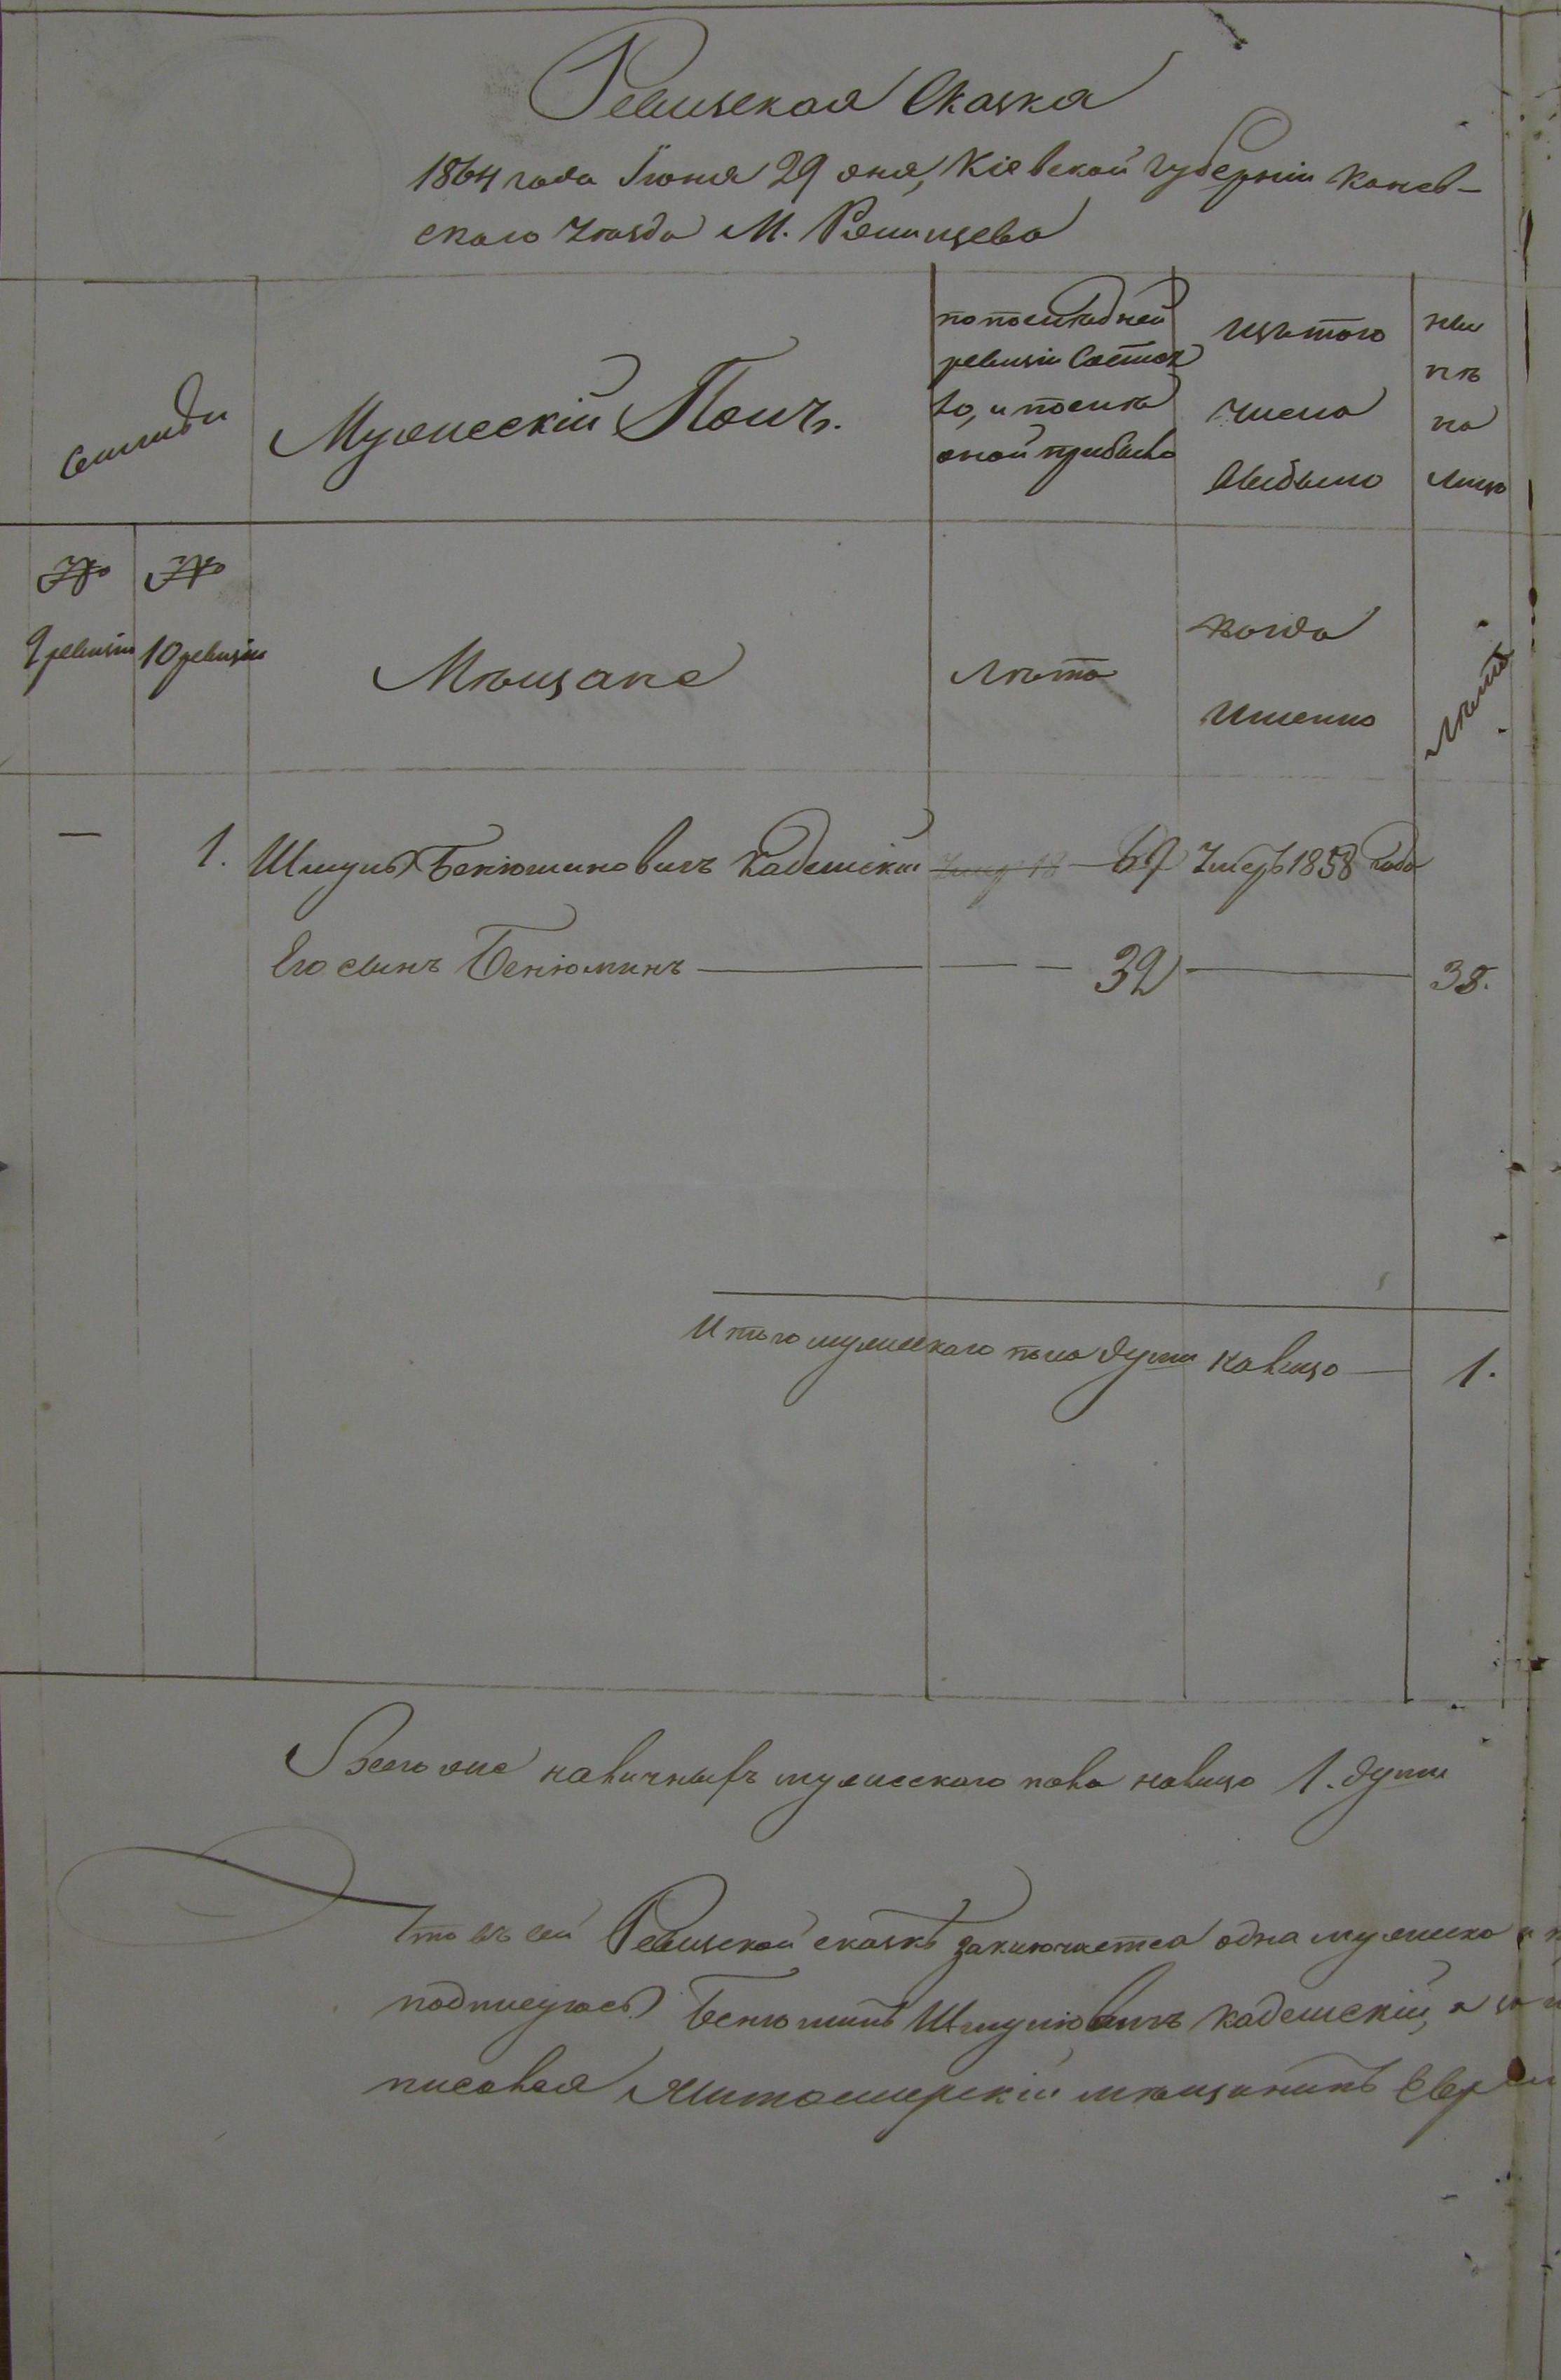 Ревизская Сказка
1864 года Іюня 29 дня, Кіевской Губерніи Канев-
скаго Уѣзда М. Ряжищева
Семьи
Мужескій Полъ.
по последней
ревизіи Состоя
ло, и после
оной прибыло
Изъ того
числа
выбыло
ны
нѣ
на
лицо
№
№
9 ревизіи
10 ревизіи
Мѣщане
Лѣта
когда
Именно
Лѣта
—
1. Шмуль Бенюминовичъ Кадешскій 69 Умеръ 1858 года
Его сынъ Бенюминъ 32 38.
Итого мужескаго пола души налицо — 1.
Всего же наличныхъ мужескаго пола налицо 1. души
Что въ сей Ревизской сказкѣ заключается одна мужска
подписуюсь Бенюминъ Шмулювичъ Кадешскій, а
писовался Житомирскій мѣщанинъ